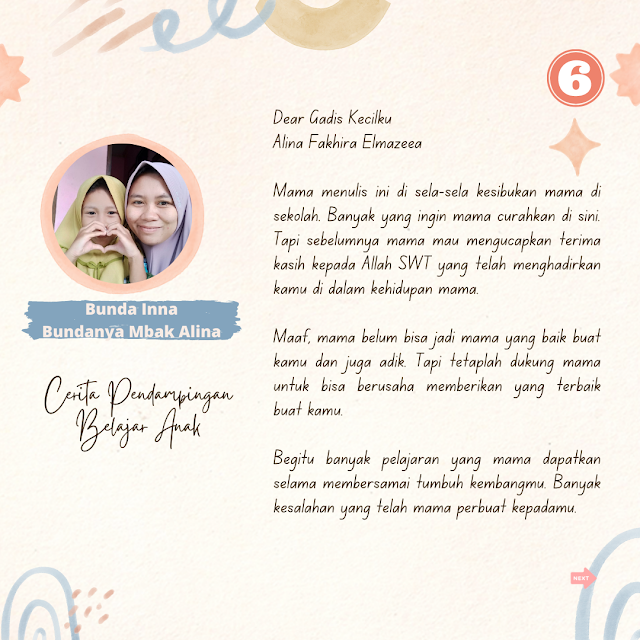 6
Dear Gadis Kecilku
Alina Fakhira Elmazeea
Mama menulis ini di sela-sela kesibukan mama di
sekolah. Banyak yang ingin mama curahkan di sini.
Tapi sebelumnya mama mau mengucapkan terima
kasih kepada Allah SWT yang telah menghadirkan
kamu di dalam kehidupan mama.
Maaf, mama belum bisa jadi mama yang baik buat
kamu dan juga adik. Tapi tetaplah dukung mama
untuk bisa berusaha memberikan yang terbaik
buat kamu.
Begitu banyak pelajaran yang mama dapatkan
selama membersamai tumbuh kembangmu. Banyak
kesalahan yang telah mama perbuat kepadamu.
Bunda Inna
Bundanya Mbak Alina
Cerita Pendampingan
Belajar Anak
NEXT